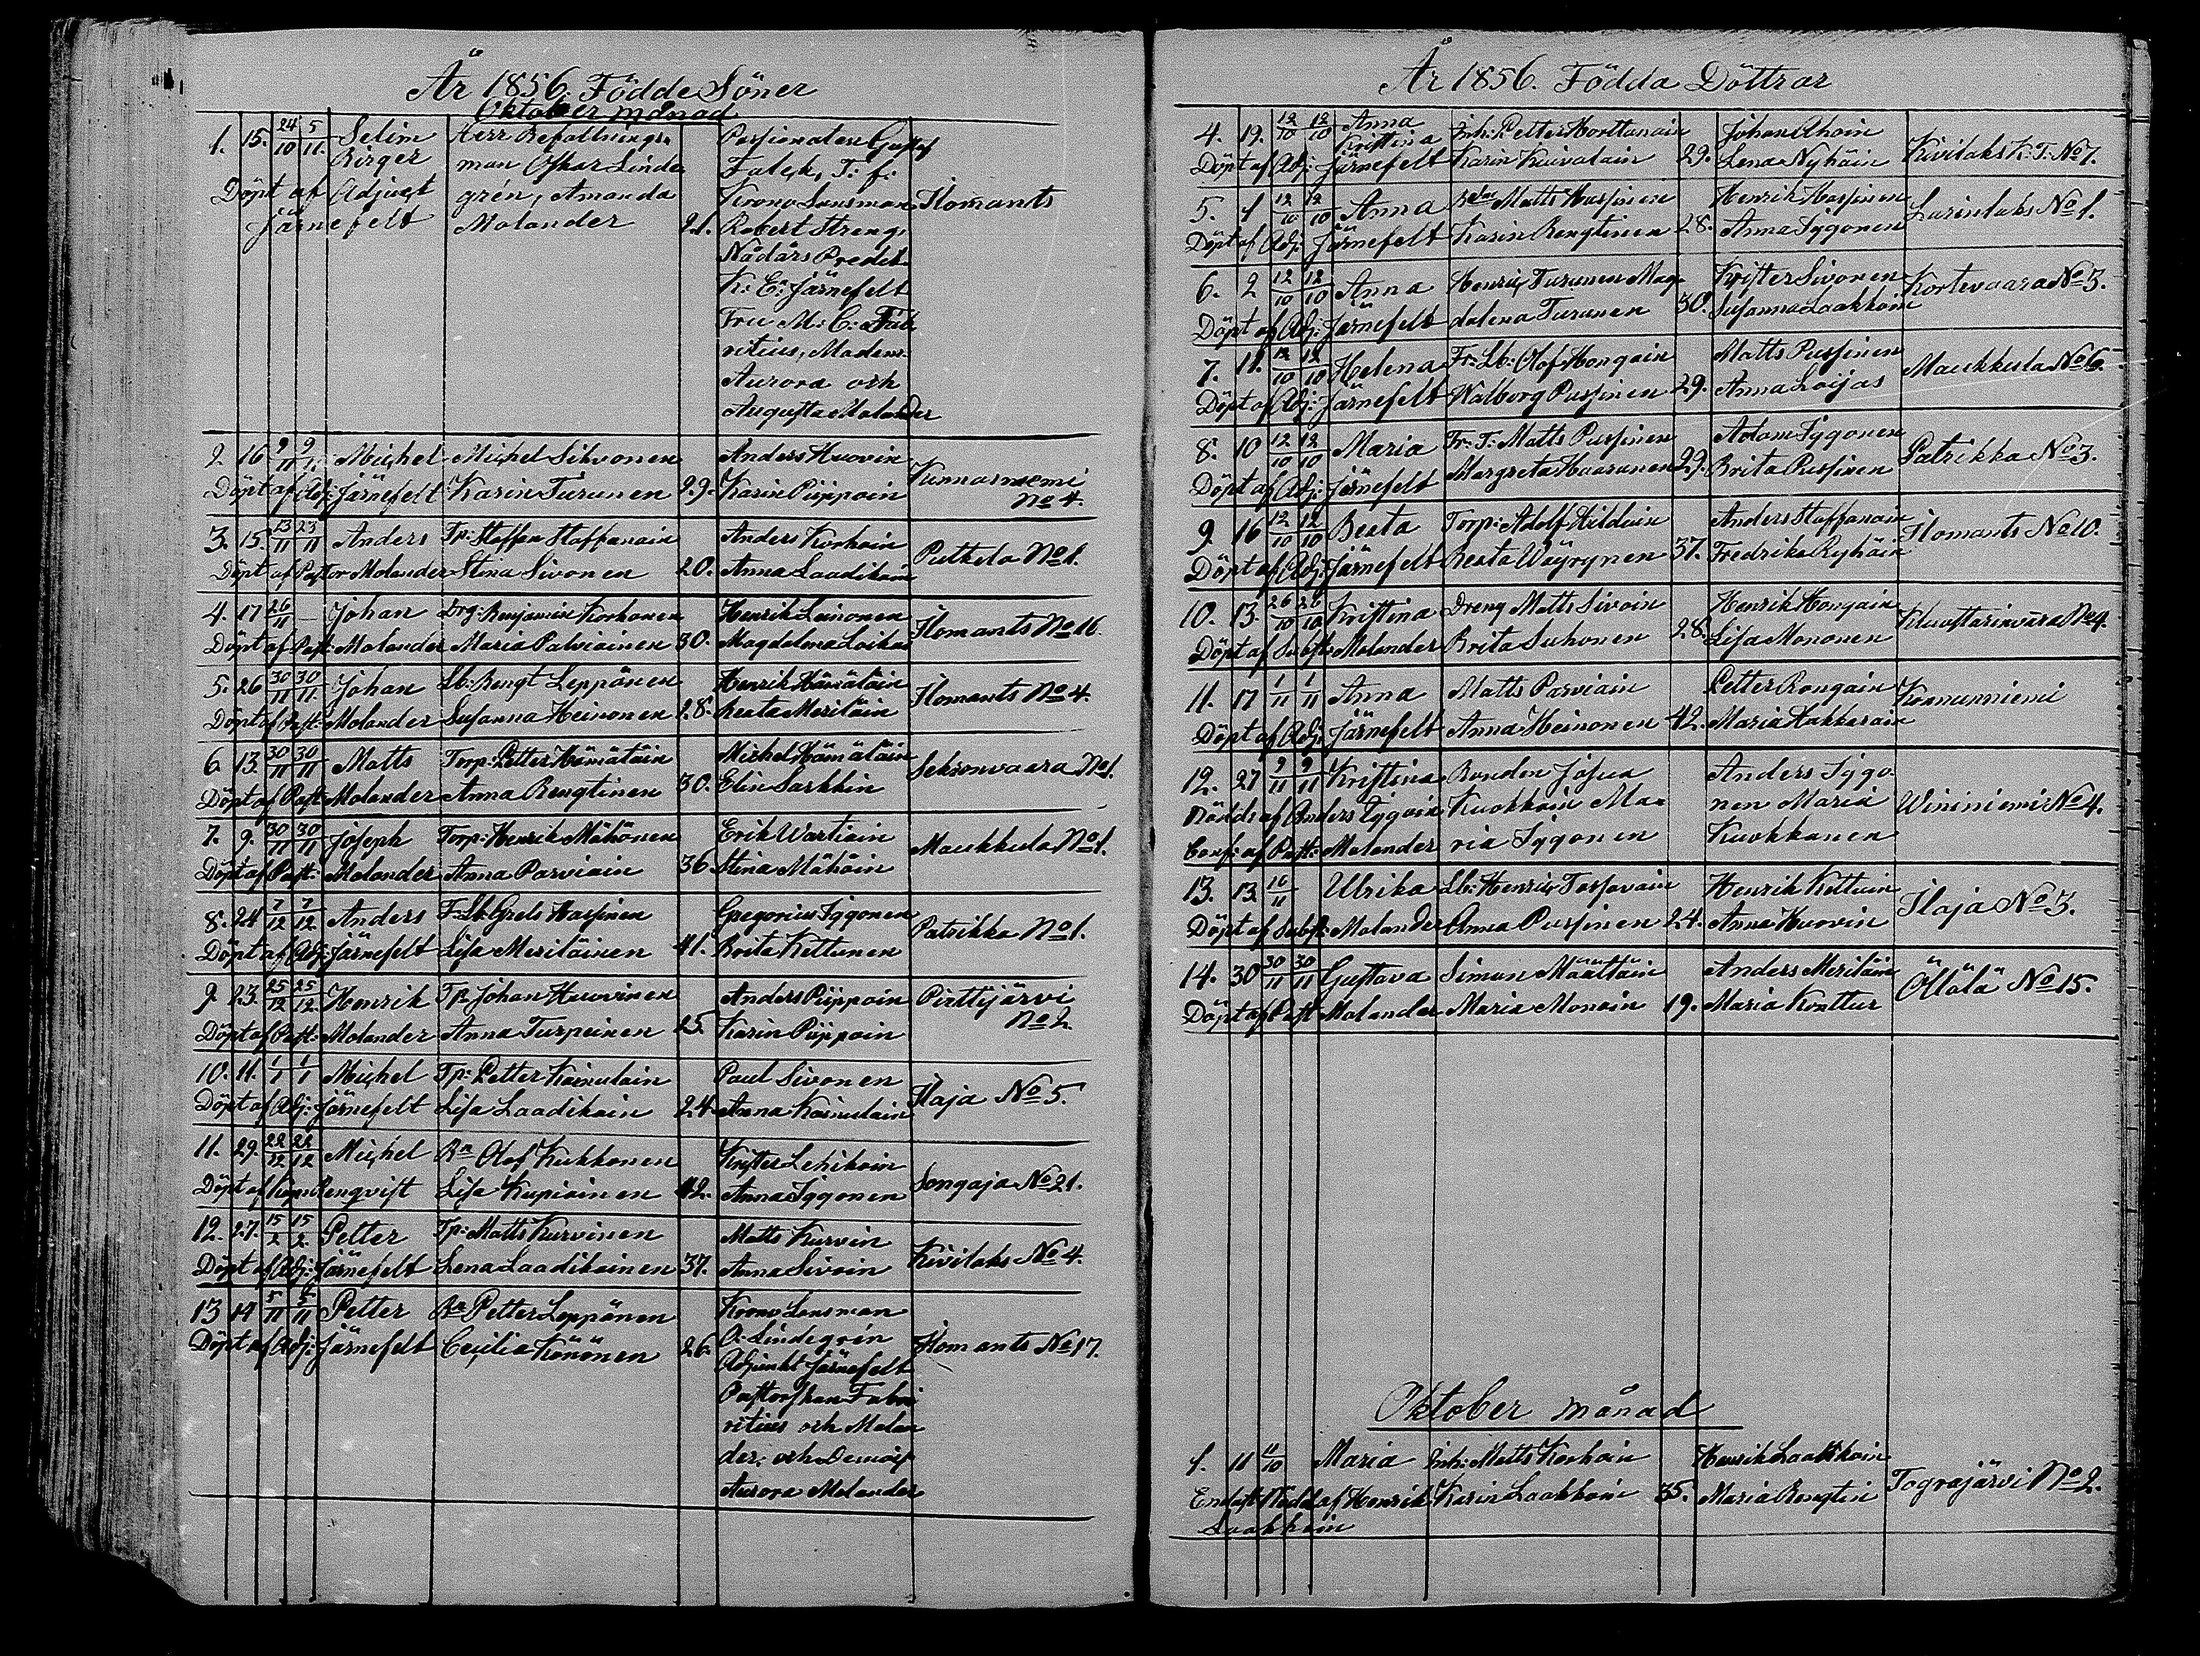 År 1856. Födde Söner
Oktober månad
1. 15. 24/10 5/11. Selim Herr Befallnings- Possionaten Gustaf
Birger man Oskar Linde Falck, T: f:
Döpt af Adjuct grén, Amanda Krono Länsman Ilomants
Järnefelt Molander 21. Robert Streng,
Nådårs Predik.
K: E: Järnefelt
Fru M: C: Fab
ritius, Madem:
Aurora och
Augusta Molander
2. 16 9/11 9/11 Michel Michel Sihvonen Anders Huovin
Döpt af Adj: Järnefelt Karin Turunen 29. Karin Piippoin Kunnasniemi No 4.
3. 15. 23/11 23/11 Anders Tp: Staffan Staffanain Anders Korhoin
Döpt af Pastor Molander Stina Sivonen 20. Anna Laadikain Putkela No 1.
4. 17 26/11 — Johan Drg: Benjamin Korhonen Henrik Leinonen
Döpt af Past: Molander Maria Palviainen 30. Magdalena Loikas Ilomants No 16.
5. 26 30/11 30/11 Johan Lb: Bengt Leppänen Henrik Hämäläin
Döpt af Past: Molander Susanna Heinonen 28. Beata Meriläin Ilomants No 4.
6. 13. 30/11 30/11 Matts Torp: Petter Hämäläin Michel Hämäläin
Döpt af Past: Molander Anna Bengtinen 30. Elin Sarkkin Sekionvaara No 1.
7. 9. 30/11 30/11 Joseph Torp: Henrik Mähönen Erik Wartiain
Döpt af Past: Molander Anna Parviain 36 Stina Mähöin Maukkula No 1.
8. 24 7/12 7/12 Anders F: Lb: Grels Hassinen Gregorius Iggonen
Döpt af Adj: Järnefelt Lisa Meriläinen 41. Brita Kettunen Patrikka No 1.
9. 23. 25/12 25/12 Henrik Tp: Johan Huovinen Anders Piippoin Pirttijärvi
Döpt af Past: Molander Anna Turpeinen 25. Karin Piippoin No 2
10. 11. 1/1 1/1 Michel Tp: Petter Kainulain Paul Sivonen
Döpt af Adj: Järnefelt Lisa Laadikain 24. Anna Kainulain Ilaja No 5.
11. 29. 22/12 22/12 Michel Bn Olof Kukkonen Krister Lehikoin
Döpt af Cap: Bengvist Lisa Kupiainen 42. Anna Iggonen Songaja No 21.
12. 27. 15/2 15/2 Petter Tp: Matts Kurvinen Matts Kurvin
Döpt af Adj: Järnefelt Lena Laadikainen 37. Anna Sivoin Kivilaks No 4.
13 14 5/11 5/11 Petter Bn Petter Leppänen Krono Länsman
Döpt af Adj: Järnefelt Cecilia Könönen 26. O: Lindegrén Ilomants No 17.
Adjunkt Järnefelt
Pastorskan Fabri
ritius och Molan
der, och Demois
Aurora Molander
År 1856. Födda Döttrar
4. 19. 12/10 12/10 Anna Kristina Inh: Petter Konttanain Johan Ahoin
Döpt af Adj: Järnefelt Karin Kuivalain 29. Lena Nyhäin Kivilaks K: T: No 7.
5. 1 12/10 12/10 Anna Matts Hassinen Henrik Hassinen
Döpt af Adj: Järnefelt Karin Bengtinen 28. Anna Iggonen Larinlaks No 1.
6. 2 12/10 12/10 Anna Henric Turunen Mag- Krister Sivonen
Döpt af Adj: Järnefelt dalena Turunen 30. Susanna Laakkoin Kortevaara No 3.
7. 11. 12/10 12/10 Helena Fr: Lb: Olof Hongain Matts Pussinen
Döpt af Adj: Järnefelt Walborg Pussinen 29. Anna Loijas Maukkula No 6.
8. 10 12/10 12/10 Maria Fr: T: Matts Pussinen Adam Iggonen
Döpt af Adj: Järnefelt Margreta Haaranen 29. Brita Pussinen Patrikka No 3.
9. 16 12/10 12/10 Beata Torp: Adolf Hilduin Anders Staffanain
Döpt af Adj: Järnefelt Beata Wäyrynen 37. Fredrika Ryhäin Ilomants No 10.
10. 13. 26/10 26/10 Kristina Dreng Matts Sivoin Henrik Hongain
Döpt af Subst: Molander Brita Suhonen 28. Lisa Mononen Kluostarinvara No 4.
11. 17 1/11 1/11 Anna Matts Parviain Petter Rongain
Döpt af Adj: Järnefelt Anna Heinonen 42. Maria Hakkarain Konnunniemi
12. 27 9/11 9/11 Kristina Bonden Josua Anders Iggo-
Nöddt af Anders Iggoin Kuokkain Ma- nen Maria Wininiemi No 4.
Conf: af Past: Molander ria Iggonen Kuokkanen
13. 13 16/11 Ulrika Lb: Henric Tossavain Henrik Kettuin
Döpt af Subst: Molander Anna Pussinen 24. Anna Huovin Ilaja No 3.
14. 30 30/11 30/11 Gustava Simon Määttäin Anders Meriläin
Döpt af Past Molander Maria Monoin 19. Maria Konttur Öllölä No 15.
Oktober månad
1. 11 11/10 Maria Inh: Matts Korhoin Henrik Laakkoin
Endast Nödd af Henrik Karin Laakkoin 35. Maria Bengtin Tograjärvi No 2.
Laakkoin